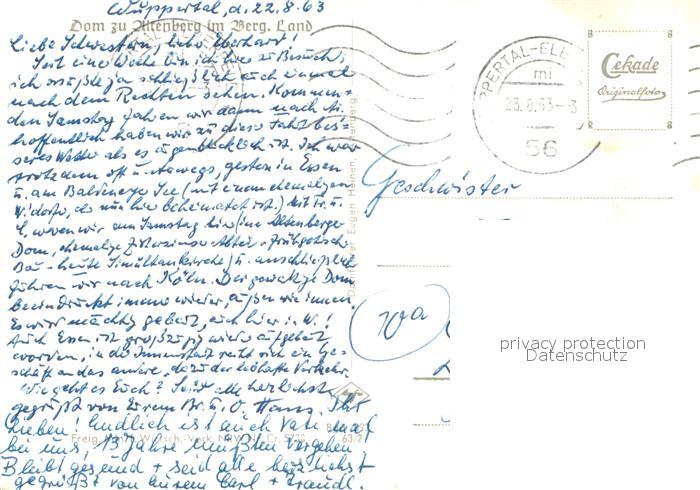 Wuppertal, d. 22.8.63
Dom zu Altenberg im Berg. Land
Liebe Schwestern, lieber Eberhard!
Seit eine Woche bin ich hier zu Besuch;
ich mußte ja schließlich auch einmal
nach dem Rechten sehen. Kommen-
den Samstag fahren wir dann nach
hoffentlich haben wir zu dieser Fahrt bes-
seres Wetter als es augenblicklich ist. Ich war
trotzdem oft unterwegs, gestern in Essen
u. am Baldeney See (mit einem ehemaligen
der nun hier beheimatet ist.) Mit Tr. u.
C. waren wir am Samstag hier im Altenberger
Dom, ehemalige Zisterzienser Abtei - Frühgotischer
Bau - heute Simultankirche) u. anschließend
fuhren wir nach Köln. Der gewaltige Dom
beeindruckt immer wieder, außen wie innen.
Es wird mächtig gebaut, auch hier in W.!
Auch Essen ist großzügig wieder aufgebaut
worden, in der Innenstadt reiht sich ein Ge-
schäft an das andere, dazu der lebhafte Verkehr.
Wie geht es Euch? Seid alle herzlichst
gegrüßt von Eurem Br. u. O. Hans. Ihr
Lieben! Endlich ist auch Vati mal
bei uns, 13 Jahre mußten vergehen
Bleibt gesund + seid alle herzlichst
gegrüßt von Eurem Carl + Traudl.
Eugen Heinen
Freig.
NRW
63/2
WUPPERTAL-ELBE
mi
23.8.63--3
56
Cekade
Originalfoto
Geschwister
privacy protection
Datenschutz